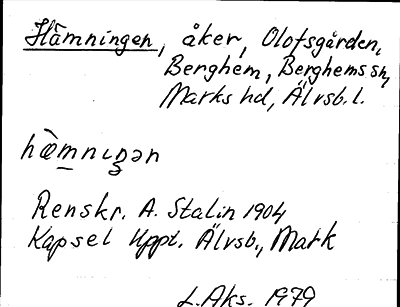 Hämningen, åker, Olofsgården,
Berghem, Berghems sn,
Marks hd, Älvsb. l.
hæ̀mnıŋən
Renskr. A. Stalin 1904
Kapsel Uppt. Älvsb., Mark
L. Aks. 1979